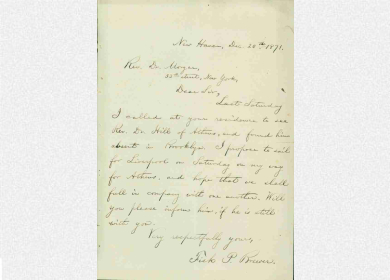 New Haven, Dec. 20th 1871.
Rev. Dr. Morgan,
28th street, New York,
Dear Sir,
Last Saturday
I called at your residence to see
Rev. Dr. Hill of Athens, and found him
absent in Brooklyn. I purpose to sail
for Liverpool on Saturday on my way
for Athens, and hope that we shall
fall in company with one another. Will
you please inform him, if he is still
with you.
Very respectfully yours,
P. Brewer.